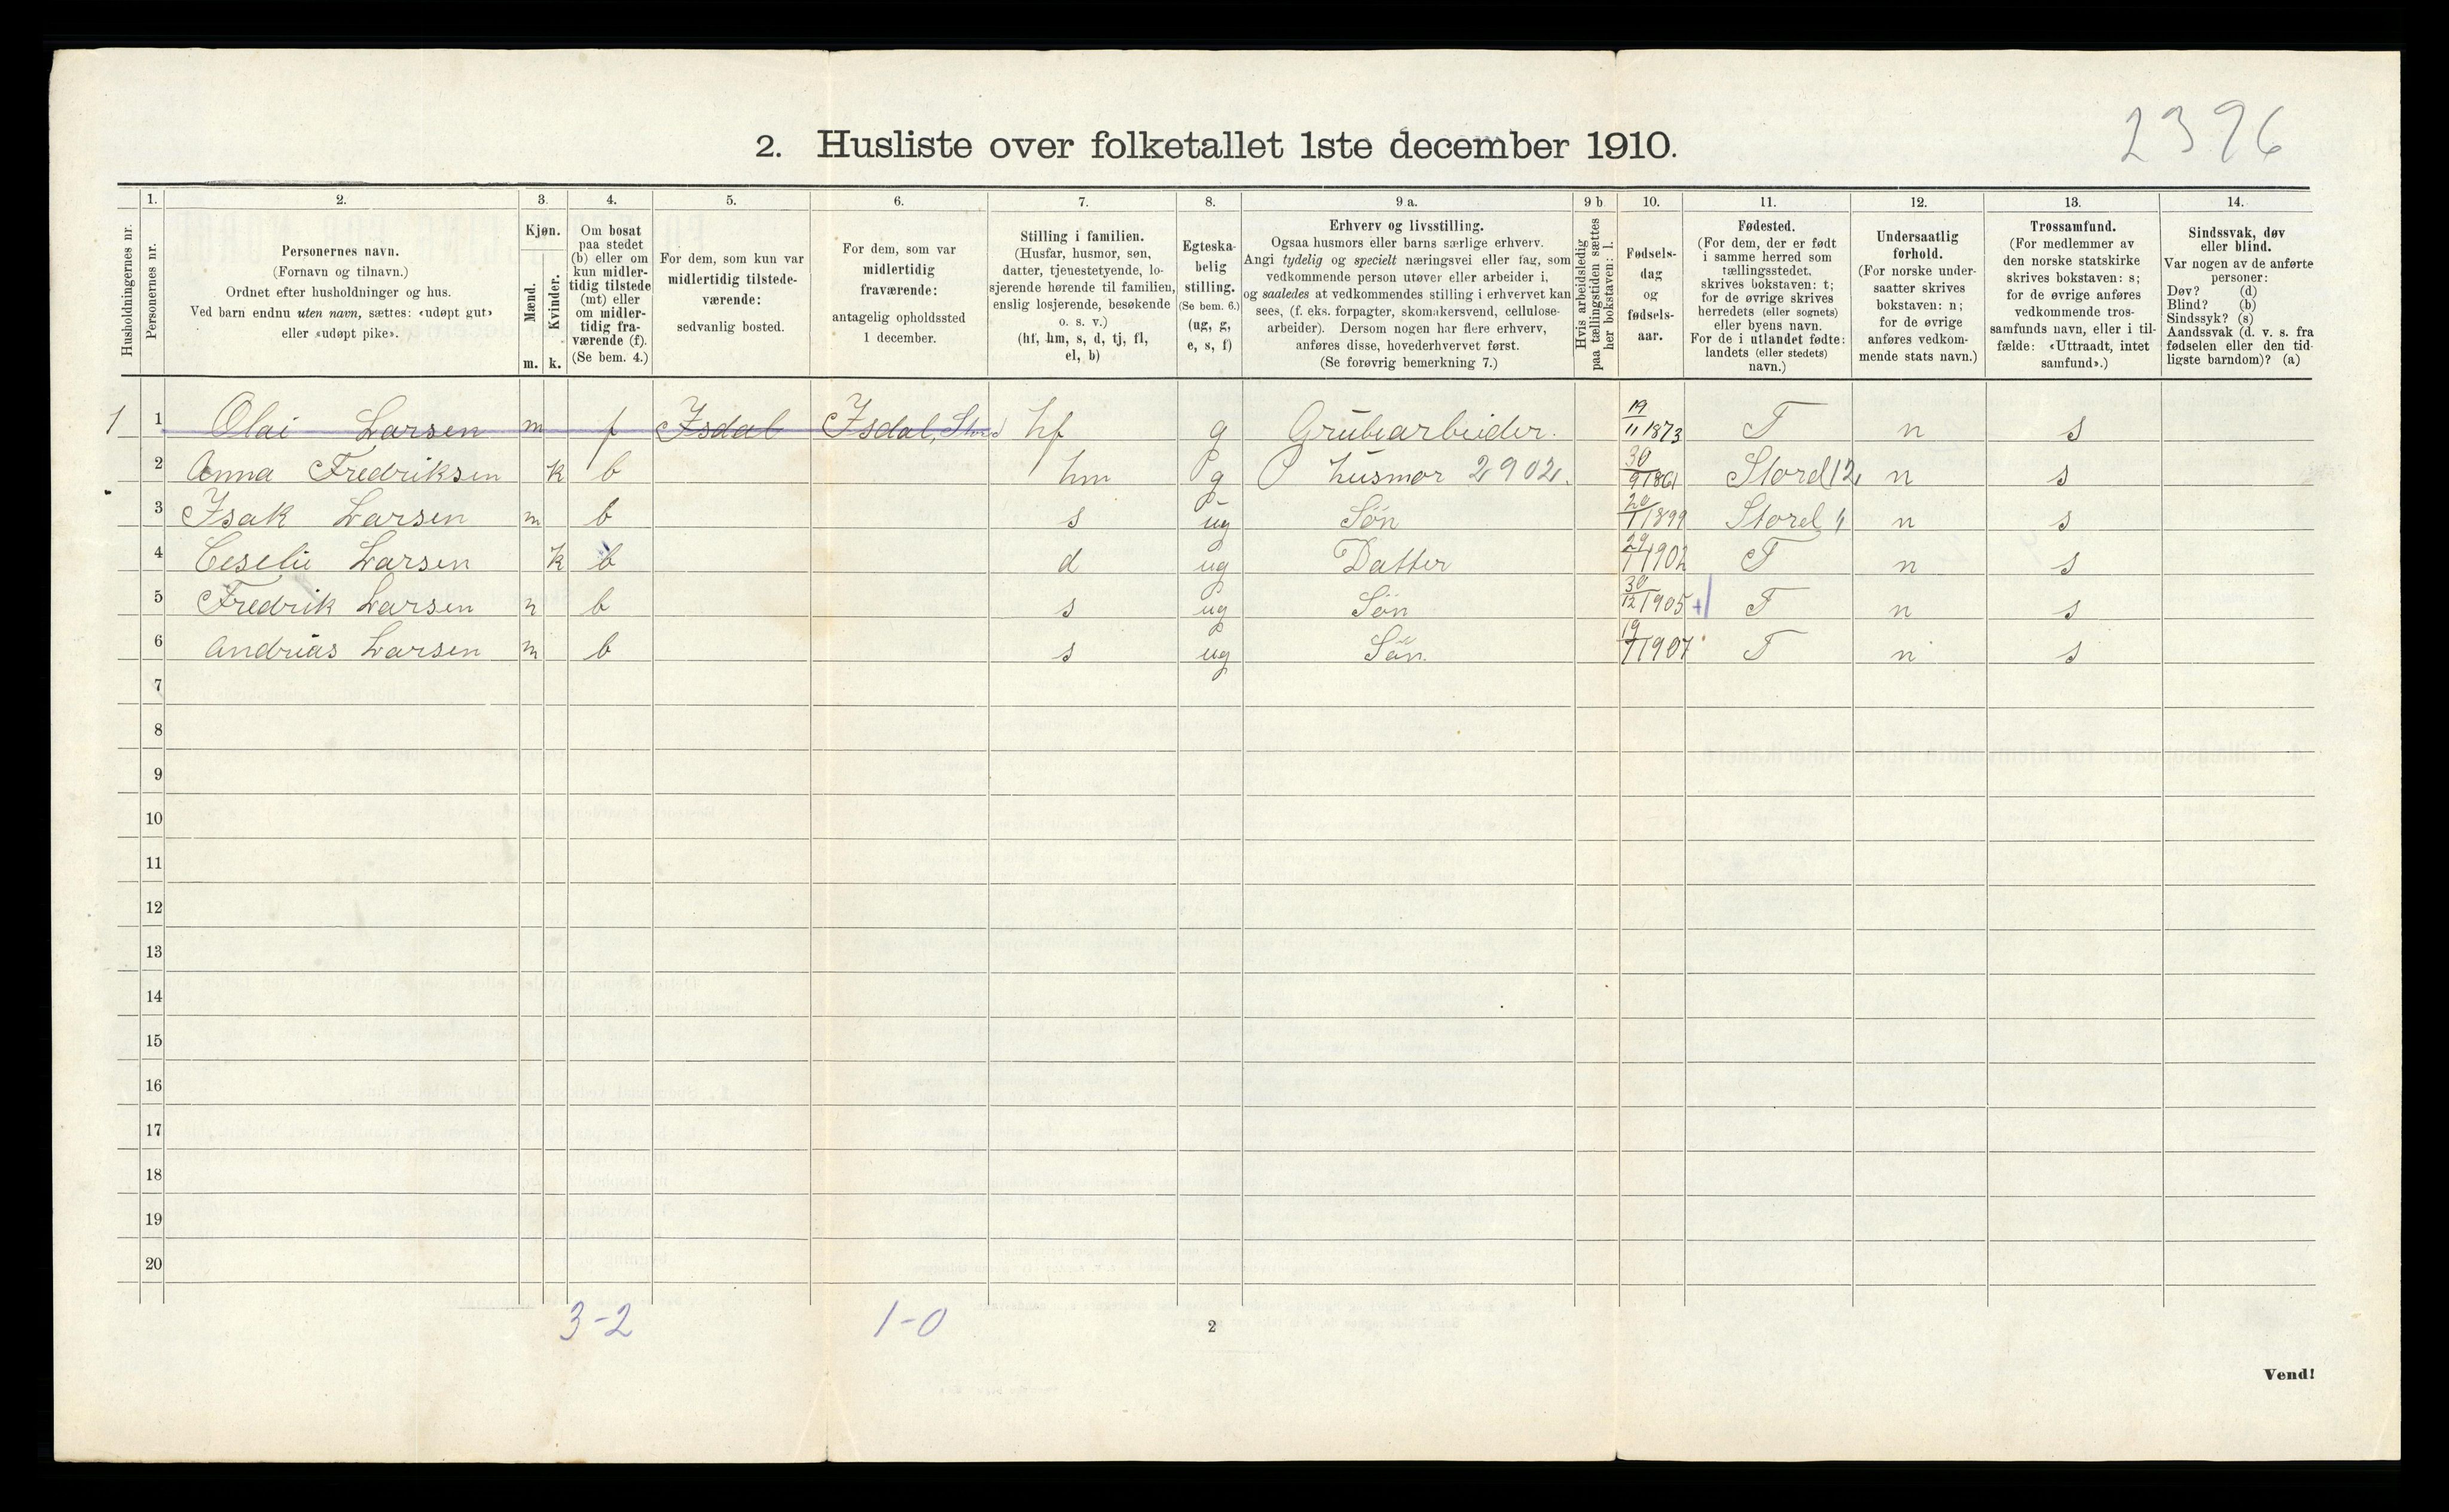 2396
2. Husliste over folketallet 1ste december 1910.
Husholdningernes nr.
1. Personernes nr.
2. Personernes navn.
(Fornavn og tilnavn.)
Ordnet efter husholdninger og hus.
Ved barn endnu uten navn, sættes: «udøpt gut»
eller «udøpt pike».
3. Kjøn.
Mænd. m.
Kvinder. k.
4. Om bosat
paa stedet
(b) eller om
kun midler-
tidig tilstede
(mt) eller
om midler-
tidig fra-
værende (f).
(Se bem. 4.)
5. For dem, som kun var
midlertidig tilstede-
værende:
sedvanlig bosted.
6. For dem, som var
midlertidig
fraværende:
antagelig opholdssted
1 december.
7. Stilling i familien.
(Husfar, husmor, søn,
datter, tjenestetyende, lo-
sjerende hørende til familien,
enslig losjerende, besøkende
o. s. v.)
(hf, hm, s, d, tj, fl,
el, b)
8. Egteska-
belig
stilling.
(Se bem. 6.)
(ug, g,
e, s, f)
9 a. Erhverv og livsstilling.
Ogsaa husmors eller barns særlige erhverv.
Angi tydelig og specielt næringsvei eller fag, som
vedkommende person utøver eller arbeider i,
og saaledes at vedkommendes stilling i erhvervet kan
sees, (f. eks. forpagter, skomakersvend, cellulose-
arbeider). Dersom nogen har flere erhverv,
anføres disse, hovederhvervet først.
(Se forøvrig bemerkning 7.)
9 b. Hvis arbeidsledig
paa tællingstiden sættes
her bokstaven: l.
10. Fødsels-
dag
og
fødsels-
aar.
11. Fødested.
(For dem, der er født
i samme herred som
tællingsstedet,
skrives bokstaven: t;
for de øvrige skrives
herredets (eller sognets)
eller byens navn.
For de i utlandet fødte:
landets (eller stedets)
navn.)
12. Undersaatlig
forhold.
(For norske under-
saatter skrives
bokstaven: n;
for de øvrige
anføres vedkom-
mende stats navn.)
13. Trossamfund.
(For medlemmer av
den norske statskirke
skrives bokstaven: s;
for de øvrige anføres
vedkommende tros-
samfunds navn, eller i til-
fælde: «Uttraadt, intet
samfund».)
14. Sindssvak, døv
eller blind.
Var nogen av de anførte
personer:
Døv? (d)
Blind? (b)
Sindssyk? (s)
Aandssvak (d. v. s. fra
fødselen eller den tid-
ligste barndom)? (a)
1 1 Olai Larsen m f Isdal Isdal, Stord hf g Grubearbeider. 19/11 1873 T n s
2 Anna Fredriksen k b hm g husmor 2902. 30/9 1861 Stord 12 n s
3 Isak Larsen m b s ug Søn 20/1 1899 Stord " n s
4 Ceselie Larsen k b d ug Datter 29/1 1902 T n s
5 Fredrik Larsen m b s ug Søn 30/12 1905 + T n s
6 Andrias Larsen m b s ug Søn. 19/7 1907 T n s
7
8
9
10
11
12
13
14
15
16
17
18
19
20
3-2 1-0
2
Vend!